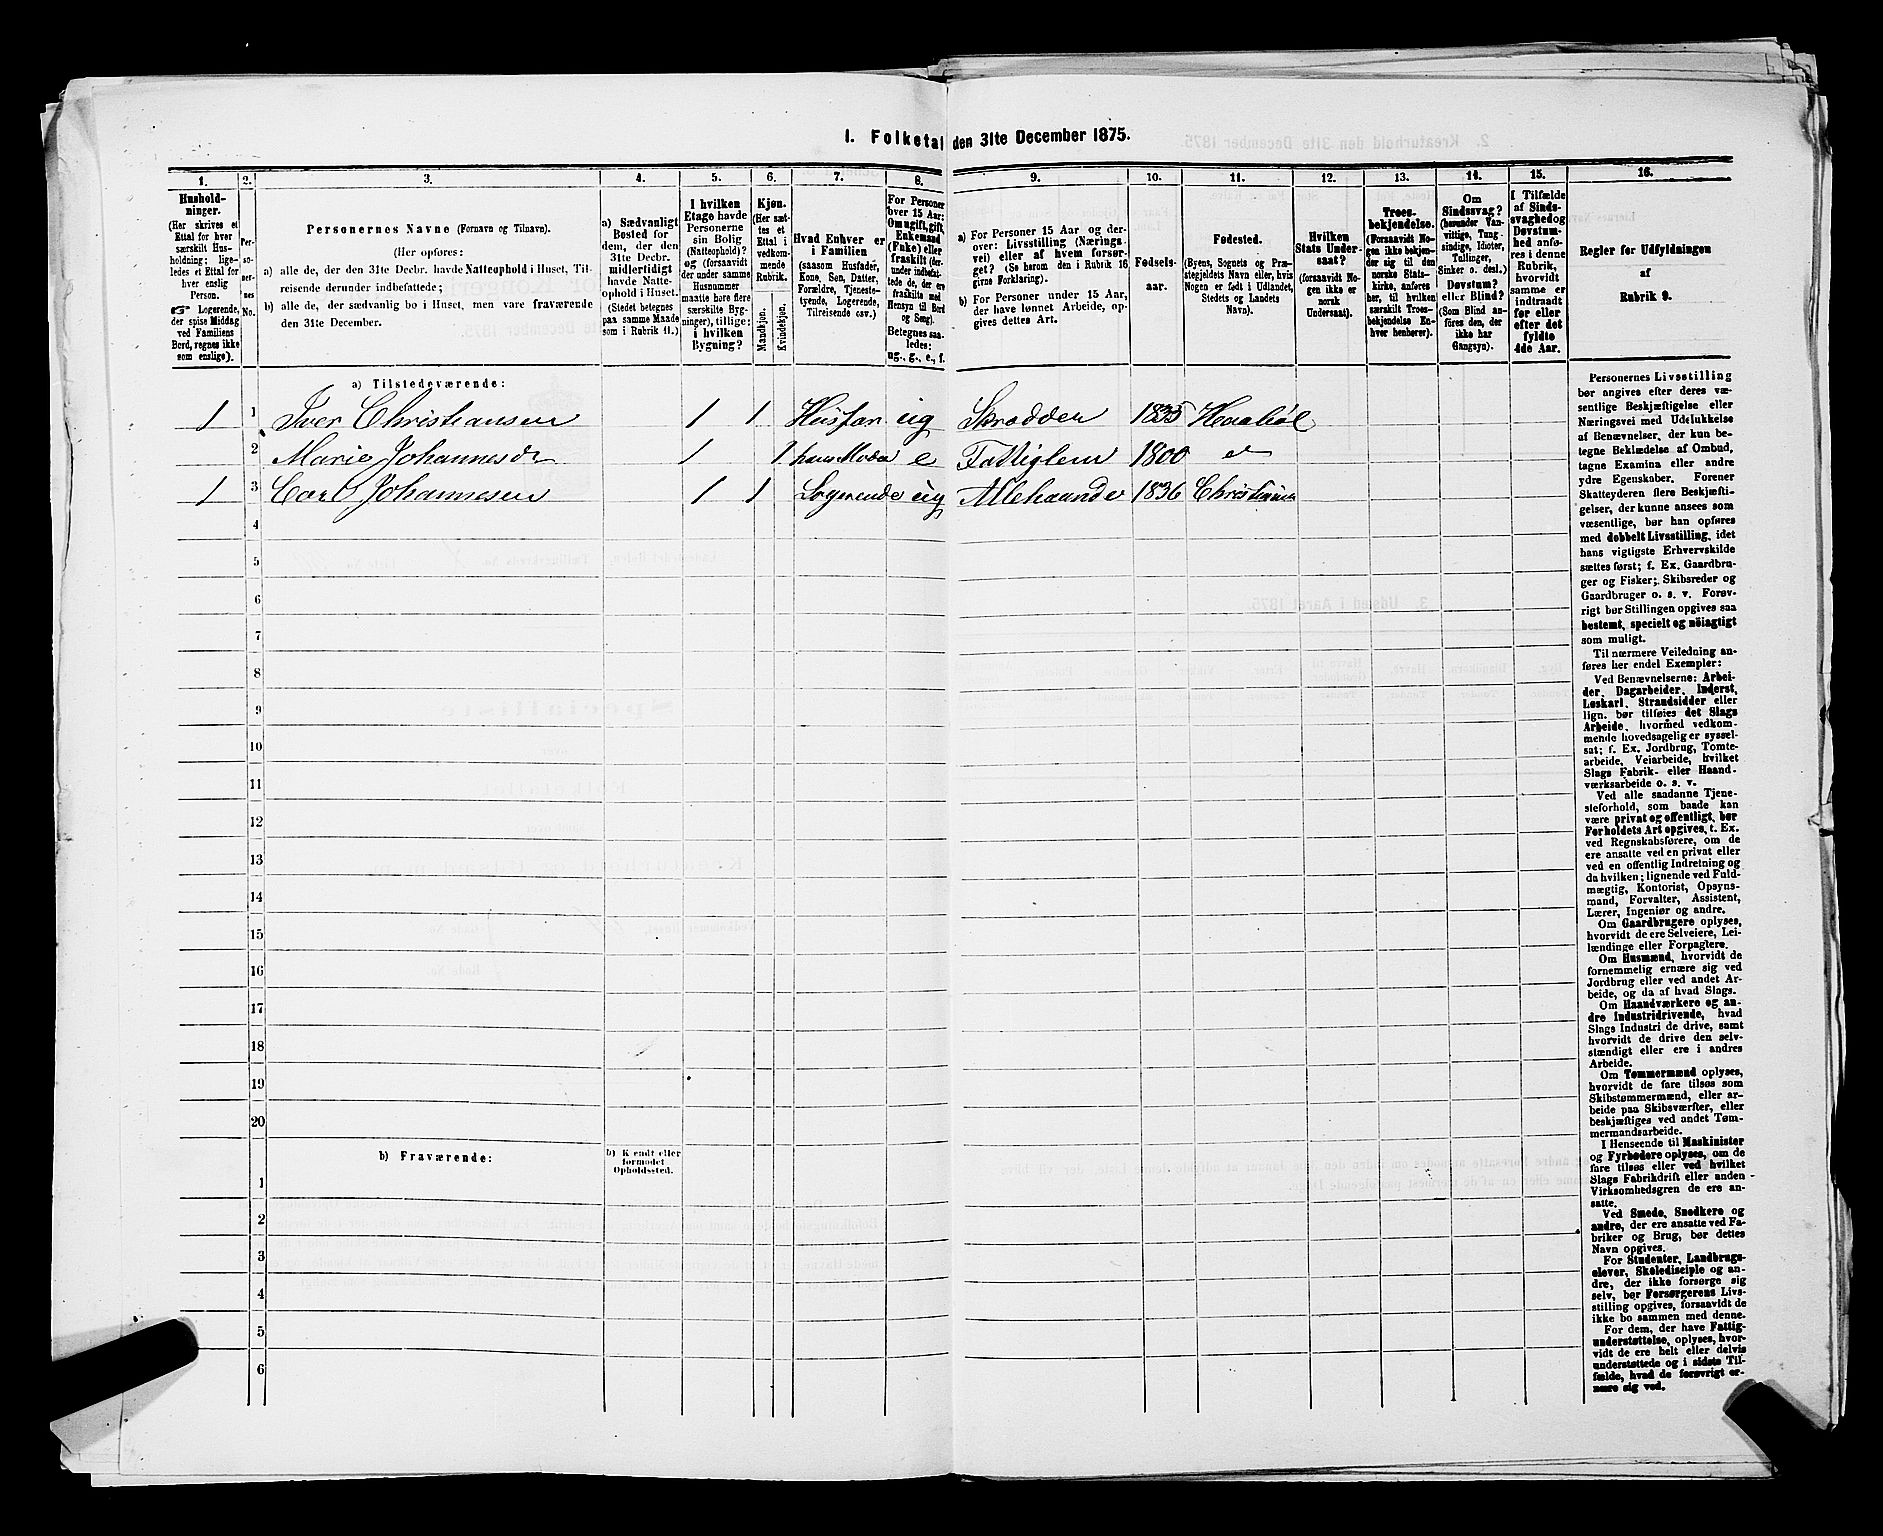 1. Folketal den 31te December 1875.
1. 2. 3. 4. 5. 6. 7. 8. 9. 10. 11. 12. 13. 14. 15. 16.
Hushold-
ninger.
(Her skrives et
Ettal for hver
særskilt Hus-
holdning; lige-
ledes et Ettal for
hver enslig
Person.
☞ Logerende,
der spise Middag
ved Familiens
Bord, regnes ikke
som enslige).
Per-
so-
ner-
nes
No.
Personernes Navne (Fornavn og Tilnavn).
(Her opføres:
a) alle de, der den 31te Decbr. havde Natteophold i Huset, Til-
reisende derunder indbefattede;
b) alle de, der sædvanlig bo i Huset, men vare fraværende
den 31te December.
a) Sædvanligt
Bosted for
dem, der den
31te Decbr.
midlertidigt
havde Natte-
ophold i Huset.
(Stedet betegnes
paa samme Maade
som i Rubrik 11.)
I hvilken
Etage havde
Personerne
sin Bolig
(Natteophold)?
og (forsaavidt
der under samme
Husnummer
maatte høre flere
særskilte Byg-
ninger), tillige:
i hvilken
Bygning?
Kjøn.
(Her sæt-
tes et
Ettal i
vedkom-
mende
Rubrik.
Mandkjøn.
Kvindekjøn.
Hvad Enhver er
i Familien
(saasom Husfader,
Kone, Søn, Datter,
Forældre, Tjeneste-
tyende, Logerende,
Tilreisende osv.)
For Personer
over 15 Aar:
Om ugift, gift,
Enkemand
(Enke) eller
fraskilt (der-
under indbefat-
tede de, der ere
fraskilte med
Hensyn til Bord
og Seng).
Betegnes saa-
ledes:
ug., g., e., f.
a) For Personer 15 Aar og der-
over: Livsstilling (Nærings-
vei) eller af hvem forsør-
get? (Se herom den i Rubrik 16
givne Forklaring).
b) For Personer under 15 Aar,
der have lønnet Arbeide, op-
gives dettes Art.
Fødsels-
aar.
Fødested.
(Byens, Sognets og Præ-
stegjeldets Navn eller, hvis
Nogen er født i Udlandet,
Stedets og Landets
Navn).
Hvilken
Stats Under-
saat?
(forsaavidt No-
gen ikke er
norsk
Undersaat).
Troes-
bekjendelse.
(Forsaavidt No-
gen ikke bekjen-
der sig til den
norske Stats-
kirke, anføres
her, til hvilken
særskilt Troes-
bekjendelse En-
hver henhører).
Om
Sindssvag?
(herunder Van-
vittige, Tung-
sindige, Idioter,
Tullinger,
Sinker o. desl.)
Døvstum?
eller Blind?
(Som Blind an-
føres den, der
ikke har
Gangsyn).
I Tilfælde
af Sinds-
svaghed og
Døvstum-
hed anfø-
res i denne
Rubrik,
hvorvidt
samme er
indtraadt
før eller
efter det
fyldte
4de Aar.
Regler for Udfyldningen
af
Rubrik 9.
a) Tilstedeværende:
1 1 Iver Christiansen 1 1 Husfar ug Skrædder 1835 Haabøl
2 Marie Johannesdr 1 1 hans Moder e Fattiglem 1800 do
1 3 Carl Johannesen 1 1 Logerende ug Allehaande 1836 Christiania
4
5
6
7
8
9
10
11
12
13
14
15
16
17
18
19
20
b) Fraværende: b) Kjendt eller
formodet
Opholdssted.
1
2
3
4
5
6
Personernes Livsstilling
bør angives efter deres væ-
sentlige Beskjæftigelse eller
Næringsvei med Udelukkelse
af Benævnelser, der kun be-
tegne Beklædelse af Ombud,
tagne Examina eller andre
ydre Egenskaber. Forener
Skatteyderen flere Beskjæfti-
gelser, der kunne ansees som
væsentlige, bør han opføres
med dobbelt Livsstilling, idet
hans vigtigste Erhvervskilde
sættes først; f. Ex. Gaardbru-
ger og Fisker; Skibsreder og
Gaardbruger o. s. v. Forøv-
rigt bør Stillingen opgives saa
bestemt, specielt og nøiagtigt
som muligt.
Til nærmere Veiledning an-
føres her endel Exempler:
Ved Benævnelserne: Arbei-
der, Dagarbeider, Inderst,
Løskarl, Strandsidder eller
lign. bør tilføies det Slags
Arbeide, hvormed vedkom-
mende hovedsagelig er syssel-
sat; f. Ex. Jordbrug, Tomte-
arbeide, Veiarbeide, hvilket
Slags Fabrik- eller Haand-
værksarbeide o. s. v.
Ved alle saadanne Tjene-
steforhold, som baade kan
være privat og offentligt, bør
Forholdets Art opgives, t. Ex.
ved Regnskabsførere, om de
ere ansatte ved en privat eller
ved en offentlig Indretning og
da hvilken; lignende ved Fuld-
mægtig, Kontorist, Opsyns-
mand, Forvalter, Assistent,
Lærer, Ingeniør og andre.
Om Gaardbrugere oplyses,
hvorvidt de ere Selveiere, Lei-
lændinge eller Forpagtere.
Om Husmænd, hvorvidt de
fornemmelig ernære sig ved
Jordbrug eller ved andet Ar-
beide, og da af hvad Slags.
Om Haandværkere og an-
dre Industridrivende, hvad
Slags Industri de drive, samt
hvorvidt de drive den selv-
stændigt eller ere i andres
Arbeide.
Om Tømmermænd oplyses,
hvorvidt de fare tilsøs som
Skibstømmermænd, eller ar-
beide paa Skibsværfter, eller
beskjæftiges ved andet Tøm-
mermandsarbeide.
I Henseende til Maskinister
og Fyrbødere oplyses, om de
fare tilsøs eller ved hvilket
Slags Fabrikdrift eller anden
Virksomhedsgren de ere an-
satte.
Ved Smede, Snedkere og
andre, der ere ansatte ved Fa-
briker og Brug, bør dettes
Navn opgives.
For Studenter, Landbrugs-
elever, Skoledisciple og an-
dre, der ikke forsørge sig
selv, bør Forsørgerens Livs-
stilling opgives, forsaavidt de
ikke bo sammen med denne.
For dem, der have Fattig-
understøttelse, oplyses, hvor-
vidt de ere helt eller delvis
understøttede og i sidste Til-
fælde, hvad de forøvrigt er-
nære sig ved.